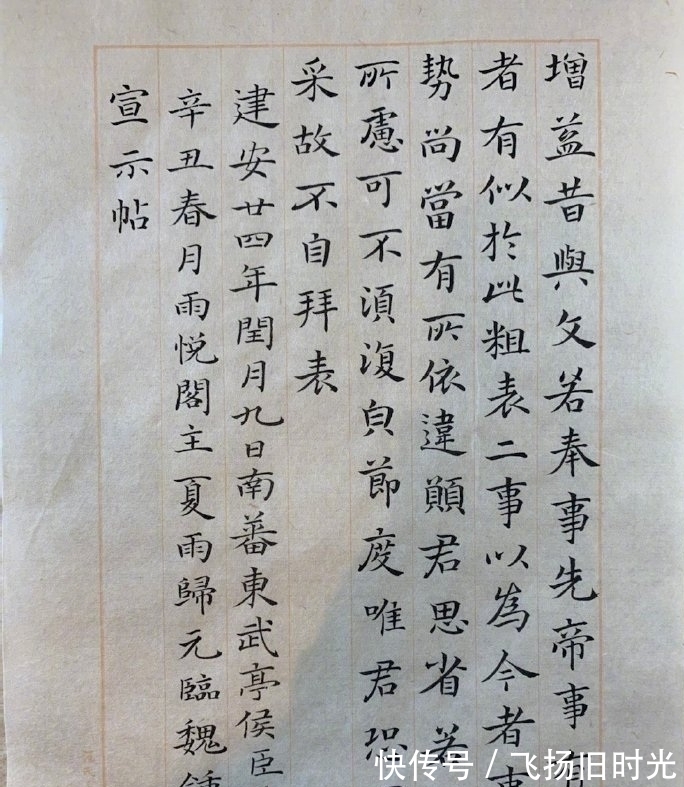 增益昔與文若奉事先帝事有
者有似於此粗表二事以為今者事
勢尚當有所依違願君思省若
所慮可不須復皃節度唯君恐
采故不自拜表
建安廿四年閏月九日南蕃東武亭侯臣
辛丑春月雨悦閣主夏雨歸元臨魏鍾
宣示帖
快传号 / 飞扬旧时光